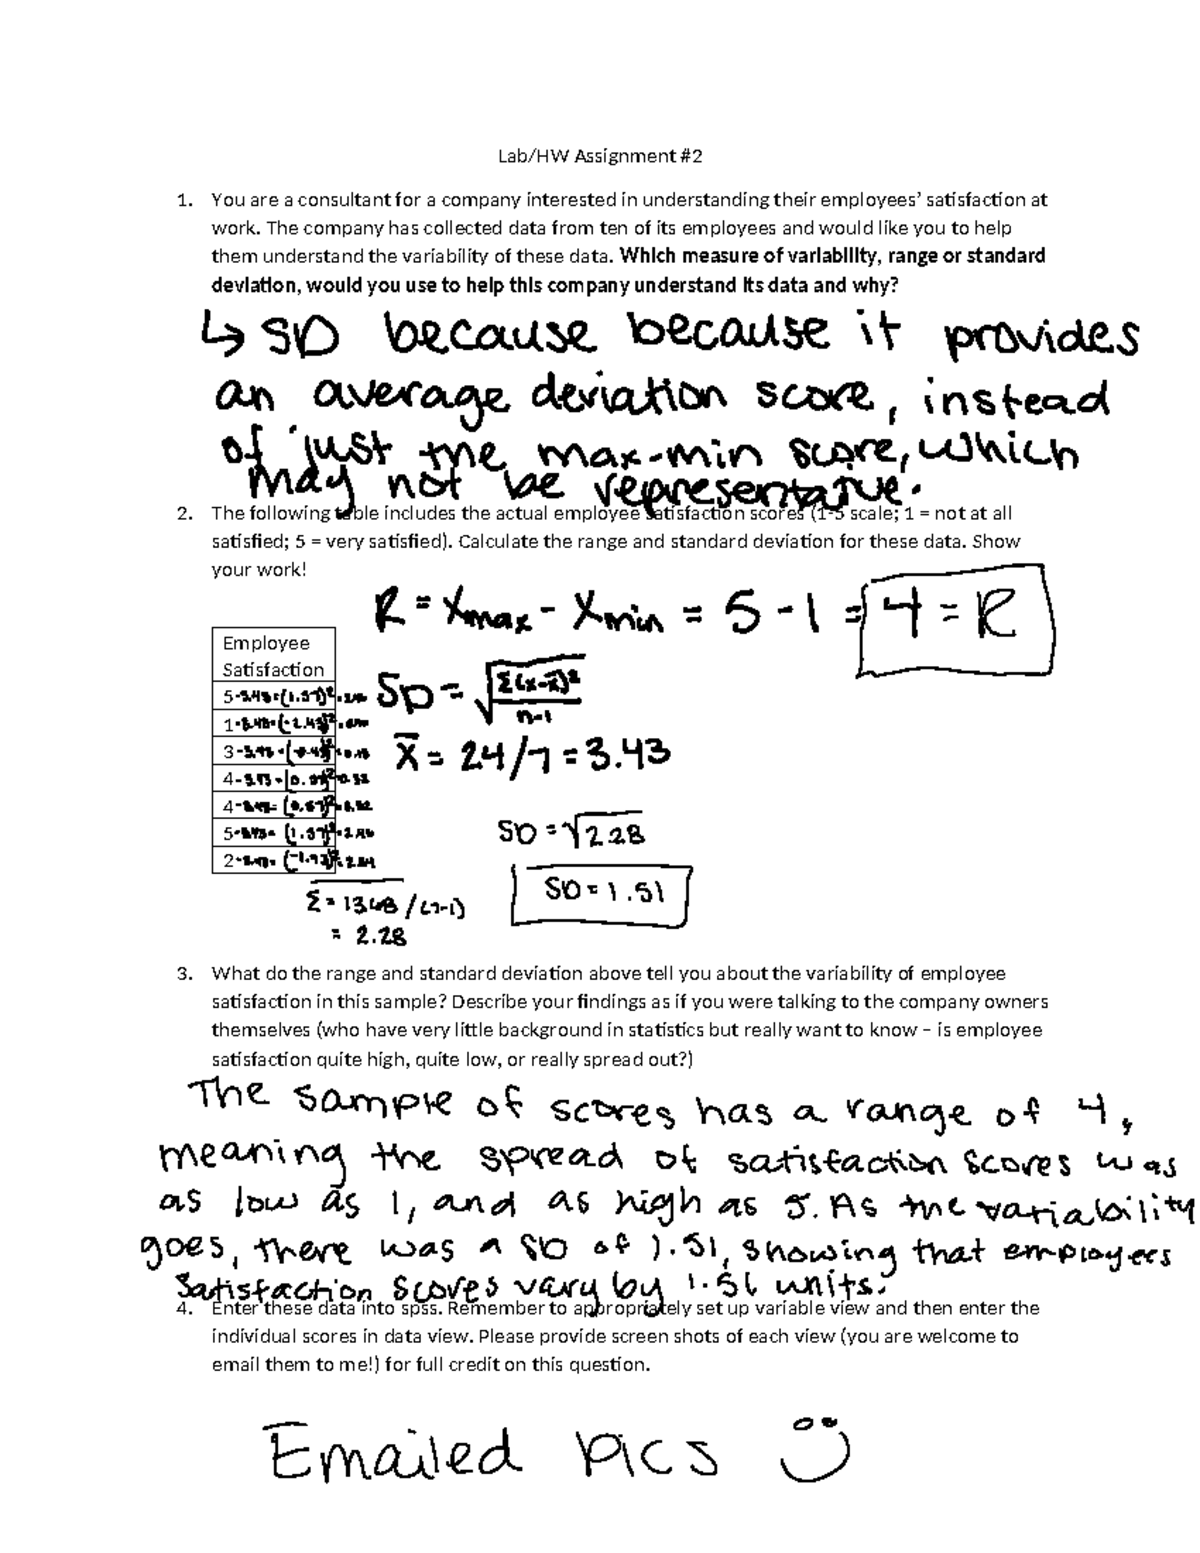 Lab/HW Assignment #2
1. You are a consultant for a company interested in understanding their employees’ satisfaction at
work. The company has collected data from ten of its employees and would like you to help
them understand the variability of these data. Which measure of variability, range or standard
deviation, would you use to help this company understand its data and why?
↳ SD because because it provides
an average deviation score, instead
of just the max-min score, which
may not be representative.
2. The following table includes the actual employee satisfaction scores (1-5 scale; 1 = not at all
satisfied; 5 = very satisfied). Calculate the range and standard deviation for these data. Show
your work!
R = Xmax - Xmin = 5 - 1 = 4 = R
Employee
Satisfaction
SD = √Σ(x-x̄)²/n-1
5-3.43=(1.57)²
1
3
X̄ = 24/7 = 3.43
4
4
5
2
SD = √2.28
SD = 1.51
Σ = 13.68 / (7-1)
= 2.28
3. What do the range and standard deviation above tell you about the variability of employee
satisfaction in this sample? Describe your findings as if you were talking to the company owners
themselves (who have very little background in statistics but really want to know – is employee
satisfaction quite high, quite low, or really spread out?)
The sample of scores has a range of 4,
meaning the spread of satisfaction scores was
as low as 1, and as high as 5. As the variability
goes, there was a SD of 1.51, showing that employees
satisfaction scores vary by 1.51 units.
4. Enter these data into spss. Remember to appropriately set up variable view and then enter the
individual scores in data view. Please provide screen shots of each view (you are welcome to
email them to me!) for full credit on this question.
Emailed pics